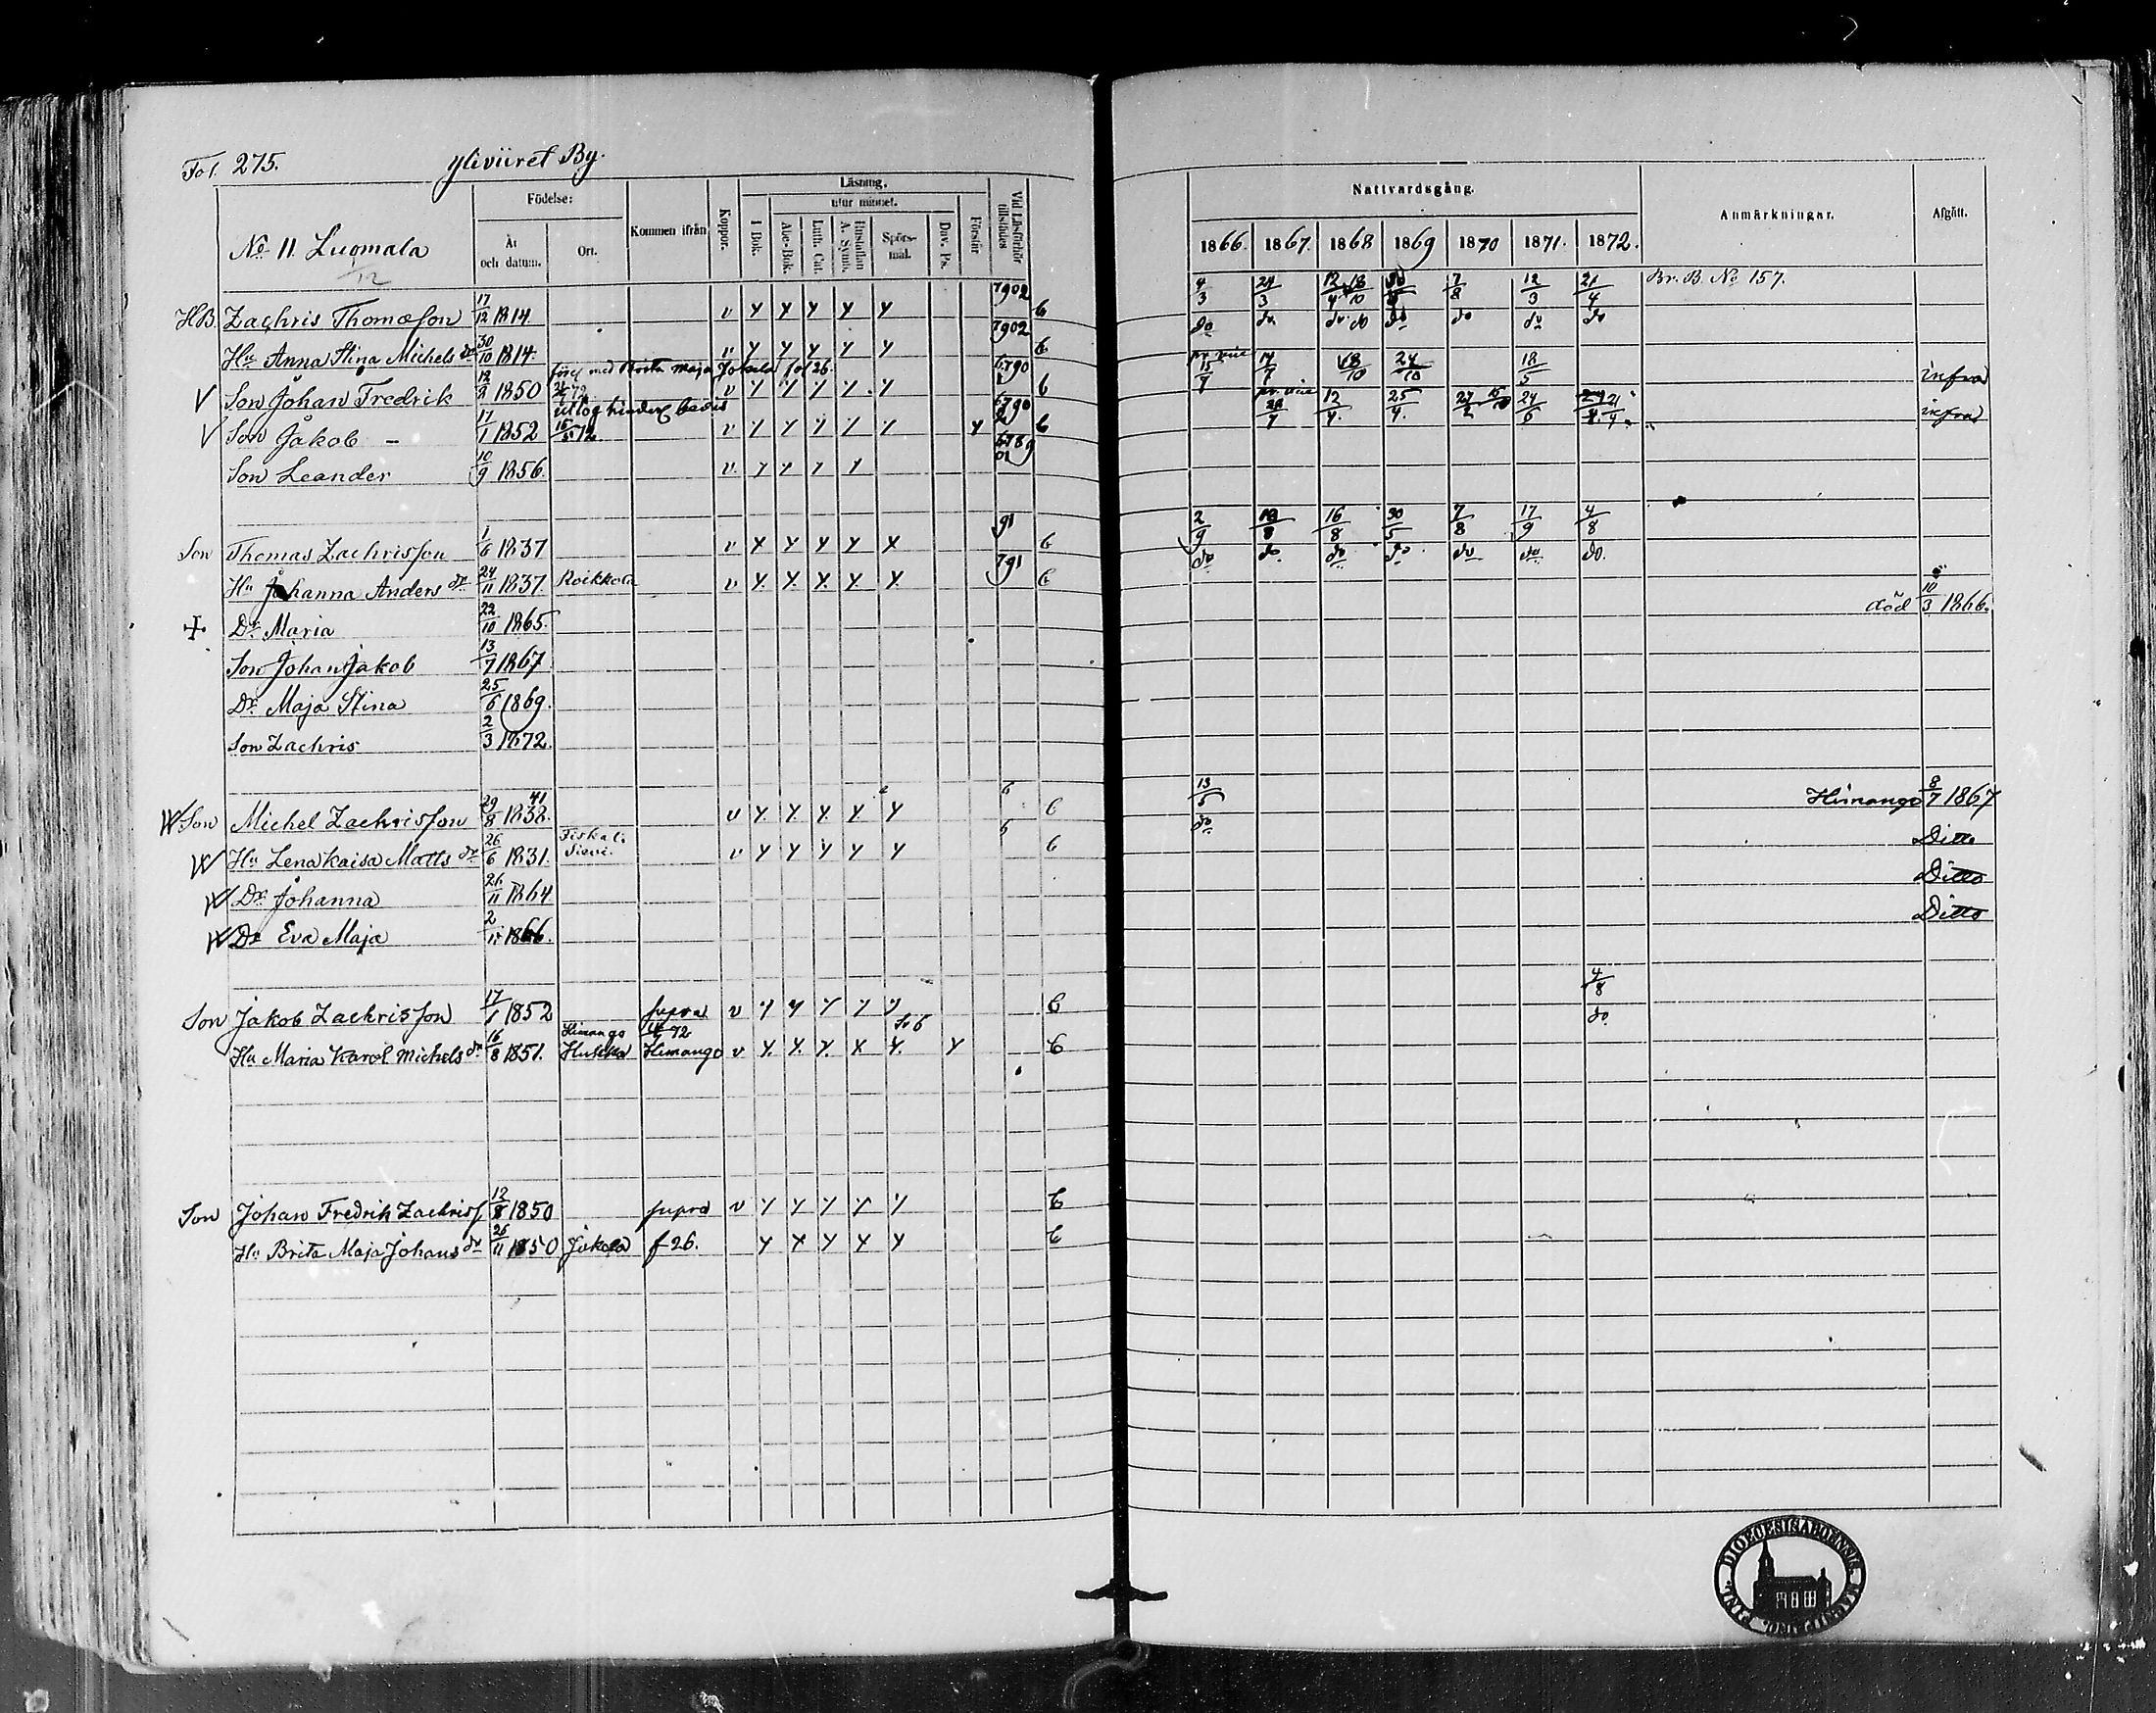 Fol. 275. Yliviiret By.
Födelse: Kommen ifrån Koppor. Läsning. Vid Läsförhör tillstädes
utur minnet.
No 11. Luomala År och datum. Ort. I Bok. Abc-Bok. Luth. Cat. Hustaflan A. Symb. Spörs-mål. Dav. Ps. Förstår
1/12
Nattvardsgång. Anmärkningar. Afgått.
1866. 1867. 1868 1869 1870 1871. 1872.
HB. Zachris Thomæson 17/12 1814. v y y y y y 7902 6 4/3 24/3 7/8 12/3 21/4 Br. B. No 157.
Hu Anna Stina Michels dr 30/10 1814. v y y y y y 7902 6 do do do do do do do do
förel med Brita Maja Jokela fol 26.
V Son Johan Fredrik 12/8 1850 v y y y y y 6790 6 18/10 24/10 18/5 infra
uttog hinderl bevis
V Son Jakob - 17/1 1852 15/5 72 v y y y y y y 6790 6 12/4. 25/4. 24/6 infra
Son Leander 10/9 1856. v. y y y y 6789
Son Thomas Zachrisson 1/6 1837 v y y y y x 91 6 2/9 18/8 16/8 30/5 7/8 17/9 4/8
Hu Johanna Anders dr 24/11 1837. Roikkola v y. y. y. y. y. 791 6 do do do do do do do.
+ Dr Maria 22/10 1865. död 10/3 1866.
Son Johan Jakob 13/7 1867
Dr Maja Stina 25/6 1869.
Son Zachris 2/3 1872.
W Son Michel Zachrisson 29/8 1838. 41 v y. y. y. y. y 6 6 13/5 Himango 8/7 1867
W Hu Lena Kaisa Matts dr 26/6 1831. Sievi. v y y y y y 6 do Ditto
W Dr Johanna 21/11 1864 Ditto
W Dr Eva Maja 2/11 1866. Ditto
Son Jakob Zachrisson 17/1 1852 supra v y y y y y 6 4/8
Hu Maria Karol. Michels dr 16/8 1851. Himango Hukka 72 Himango v y. y. y. x y. y 6 do.
Son Johan Fredrik Zachriss. 12/8 1850 supra v y y y y y 6
Hu Brita Maja Johans dr 26/11 1850 Jokela f 26. y x y x y 6